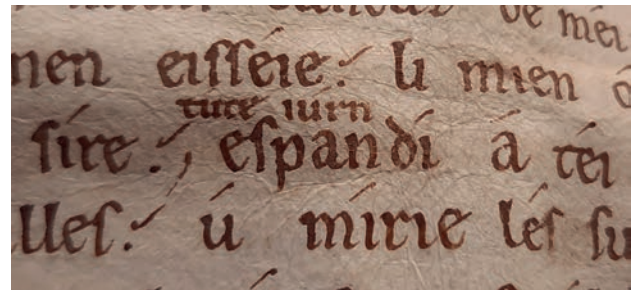 de méi
nen eisséie. li mien
tute iurn
sire., espandí á téi
lles. ú mírie lés su